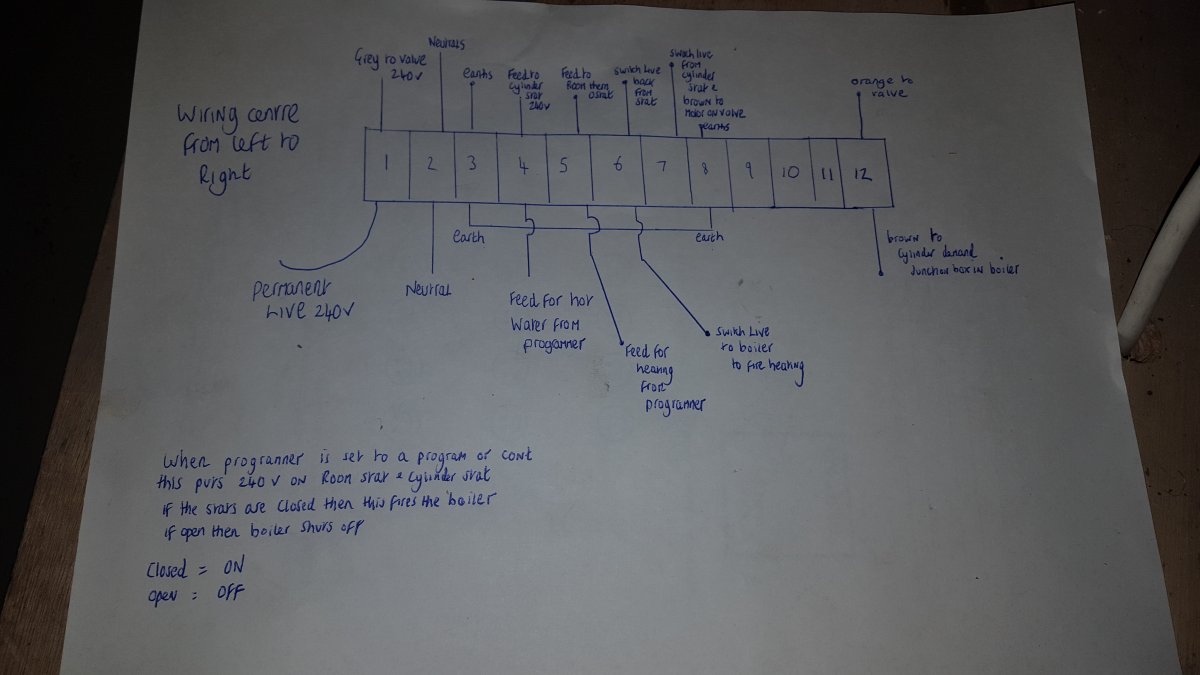 Wiring centre
from left to
Right
Grey to valve
240v
Neutrals
earths
Feed to
cylinder
stat
240v
Feed to
Room therm
ostat
switch Live
back
from
stat
switch live
from
cylinder
stat &
brown to
motor on valve
earths
orange to
valve
1 2 3 4 5 6 7 8 9 10 11 12
Permanent
Live 240v
Neutral
earth
earth
Feed for hot
water from
programmer
Feed for
heating
from
programmer
switch Live
to boiler
to fire heating
brown to
cylinder demand
Junction box in boiler
When programmer is set to a program or cont
this puts 240v on Room stat & cylinder stat
if the stats are closed then this fires the boiler
if open then boiler shuts off
Closed = ON
open = OFF